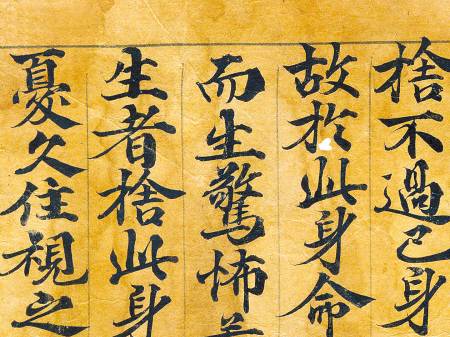 捨不過己身
故扵此身命
而生驚怖
生者捨此身
憂久住視之